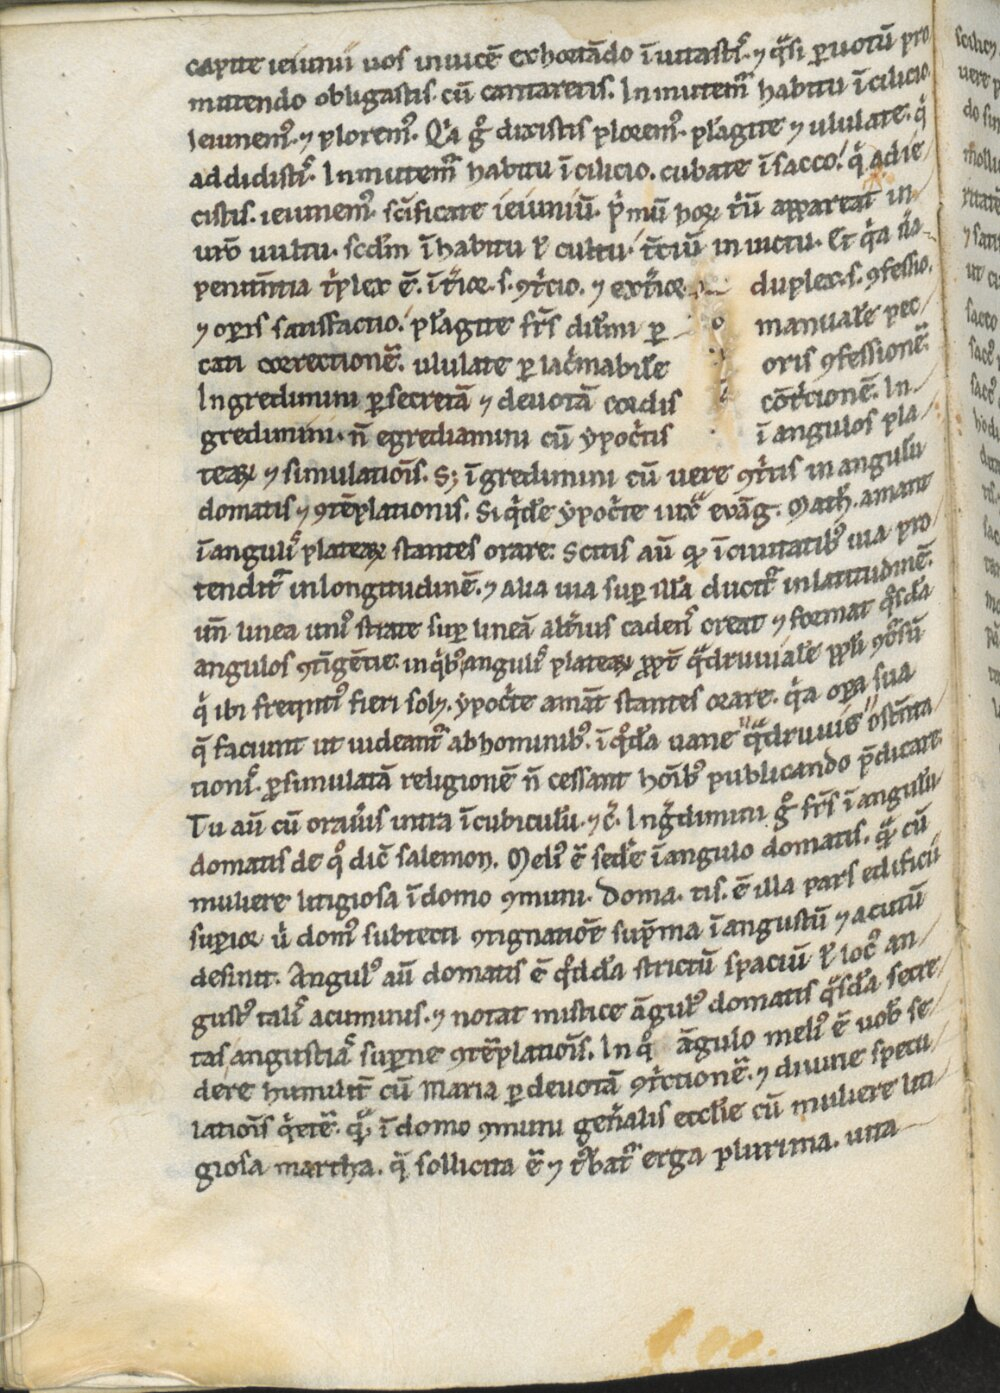 capite ieiunii uos inuicē exhortādo īuitastꝭ. ⁊ q̄si ꝑ uotū pro
mittendo obligastis. cū cantaretis. Inmutemꝰ habitu ī cilicio.
Ieiunemꝰ. ⁊ ploremꝰ. Qꝛa gͦ dixistis ploremꝰ. plāgite ⁊ ululate. qꝛ
addidistꝭ. Inmutemꝰ habitu ī cilicio. cubate ī sacco. qꝛ adie
cistis. ieiunemꝰ. scīficate ieiuniū. pͥmū hoꝝ tͥū appareat in
uro uultu. scd̄m ī habitu ⁊ cultu. t̄ciū in uictu. Et qꝛa
penitn̄tia tͥplex ē. īt̾ioꝛ .s. ꝯtͥcio. ⁊ ext̾ioꝛ duplex .s. ꝯfessio.
⁊ oꝑis satisfactio. plāgite frs̄ dil̄mi ꝑ manuale pec
cati correctionē. ululate ꝑ lacͥmabile oris ꝯfessionē.
Ingredimini ꝑ secretā ⁊ deuotā cordis cōtͥcionē. In
gredimini. n̄ egrediamini cū ypocͥtis ī angulos pla
teaꝝ ⁊ simulatiōis. Sꝫ īgredimini cū uere ꝯtͥtis in angulū
domatis ⁊ ꝯtēplationis. Siqͥdē ypocͥte iuxͣ euāg. Math̄. amant
ī angulꝭ plateaꝝ stantes orare. Scitis aū qꝫ ī ciuitatibꝰ uia pro
tenditͬ in longitudinē. ⁊ alia uia suꝑ illā ducitͬ in latitudinē.
un̄ linea uniꝰ strate suꝑ lineā alt̾ius cadens creat ⁊ format qͦsdā
angulos ꝯtīgētie. in qͥbꝰ angulꝭ plateaꝝ ꝓpt̾ qͣdruuiale ppl̄i ꝯcͬsū
qͥ ibi frequn̄tꝰ fieri solꝫ. ypocͥte amāt stantes orare. qꝛa oꝑa sua
q̄ faciunt ut uideantͬ ab hominibꝰ. ī qͦdā uane qͣdruuie ostn̄ta
tionꝭ. ꝑ simulatā religionē n̄ cessant hoībꝰ publicando p̄dicare.
Tu aū cū orau̾is intra ī cubiculū. ⁊c̄. Ingͣdimini gͦ frs̄ ī angulū
domatis de qͦ dic̄ salemon. Meliꝰ ē sedēꝛe ī angulo domatis. qͣꝫ cū
muliere litigiosa ī domo ꝯmuni. Doma. tis. ē illa pars edificii
suꝑior uͥ domꝰ subtecti ꝯtignatiōe sup̄ma ī angustū ⁊ acutū
desinit. Angulꝰ aū domatis ē qͦddā strictū spaciū ⁊ locꝰ an
gustꝰ talꝭ acuminis. ⁊ notat mistice āgulꝰ domatis qͣsdā secre
tas angustias suꝑne ꝯtēplatiōis. In qͦ āgulo meliꝰ ē uob̄ se
dere humilit̾ cū Maria ꝑ deuotā ꝯtͥctionē. ⁊ diuine specu
latiōis qͥetē. qͣꝫ ī domo ꝯmuni gen̄alis ecclīe cū muliere liti
giosa martha. q̄ sollicita ē ⁊ tͬbatͬ erga plurima. uita